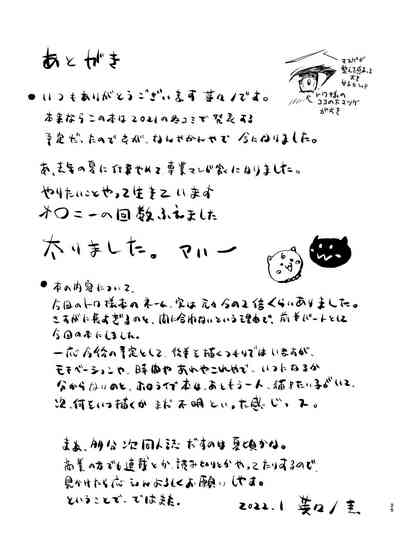 あとがき
マユバが
トワ様の
ココのホマツゲ
が大事
● いつもありがとうございます 英ノです。
本来ならこの本は2021の冬コミで発表する
予定だったのですが、なんやかんやで 今になりました。
あ、去年の夏に仕事やめて専業マンガ家になりました。
やりたいことやって生きています
オ〇ニーの回数ふえました
太りました。 アハー
● 本の内容について、
今回のトワ様本のネーム、実は元々今の2倍くらいありました。
さすがに長すぎるのと、間に合わないという理由で、前半パートとして
今回の本にしました。
一応今後の予定として、後半も描くつもりではいますが、
モチベーションや、時間や あれやこれやで、いつになるか
分からないのと、ホロライブ本は、あともう一人、描きたい子がいて、
次、何をいつ描くか まだ不明といった感じっス。
まぁ、多分次同人誌だすのは夏頃かな。
商業の方でも連載とか、読み切りとかやってたりするので、
見かけたら応えんよろしくお願いしやす。
ということで、ではまた。
2022.1
25